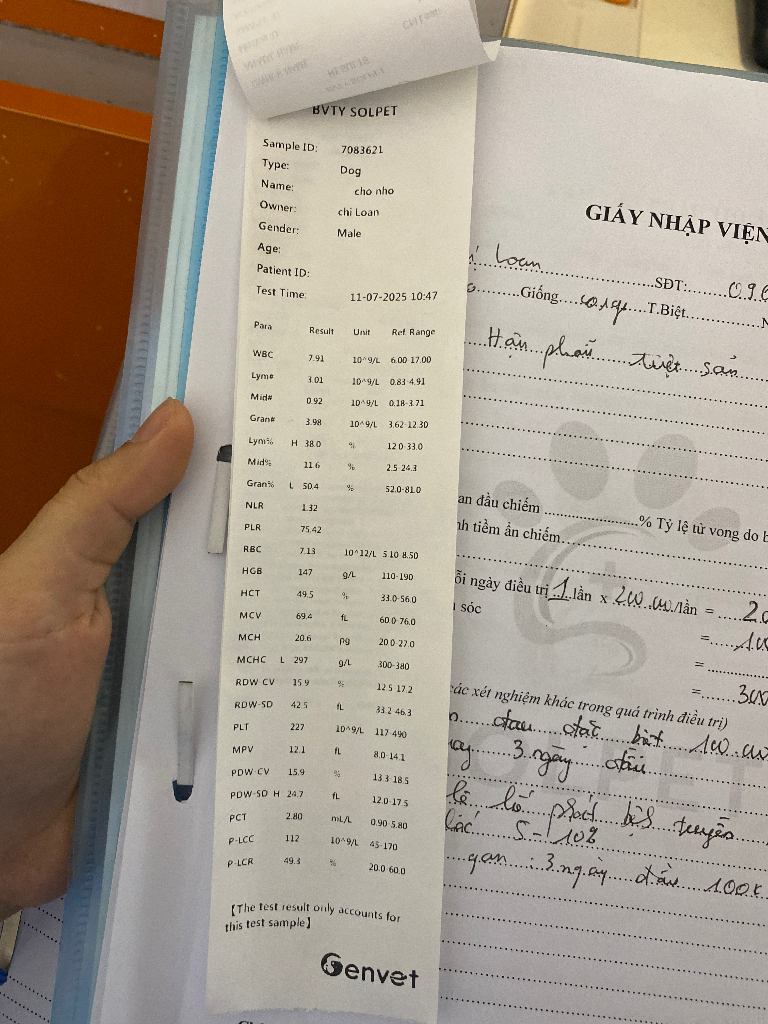 BVTY SOLPET
Sample ID: 7083621
Type: Dog
Name: cho nho
Owner: chi Loan
Gender: Male
Age:
Patient ID:
Test Time: 11-07-2025 10:47
Para Result Unit Ref. Range
WBC 7.91 10^9/L 6.00-17.00
Lym# 3.01 10^9/L 0.83-4.91
Mid# 0.92 10^9/L 0.18-3.71
Gran# 3.98 10^9/L 3.62-12.30
Lym% H 38.0 % 12.0-33.0
Mid% 11.6 % 2.5-24.3
Gran% L 50.4 % 52.0-81.0
NLR 1.32
PLR 75.42
RBC 7.13 10^12/L 5.10-8.50
HGB 147 g/L 110-190
HCT 49.5 % 33.0-56.0
MCV 69.4 fL 60.0-76.0
MCH 20.6 pg 20.0-27.0
MCHC L 297 g/L 300-380
RDW-CV 15.9 % 12.5-17.2
RDW-SD 42.5 fL 33.2-46.3
PLT 227 10^9/L 117-490
MPV 12.1 fL 8.0-14.1
PDW-CV 15.9 % 13.3-18.5
PDW-SD H 24.7 fL 12.0-17.5
PCT 2.80 mL/L 0.90-5.80
P-LCC 112 10^9/L 45-170
P-LCR 49.3 % 20.0-60.0
【The test result only accounts for
this test sample】
Genvet
GIẤY NHẬP VIỆN
Loan SĐT: 090
Giống T.Biệt
Hậu phẫu triệt sản
an đầu chiếm % Tỷ lệ tử vong do b
nh tiềm ẩn chiếm
ỗi ngày điều trị 1 lần x 200.000/lần = 20
sóc = 100
=
= 300
các xét nghiệm khác trong quá trình điều trị)
đau đặc biệt 100.000
3 ngày đầu
phát bệnh truyền
5-10%
gan : 3 ngày đầu 100k